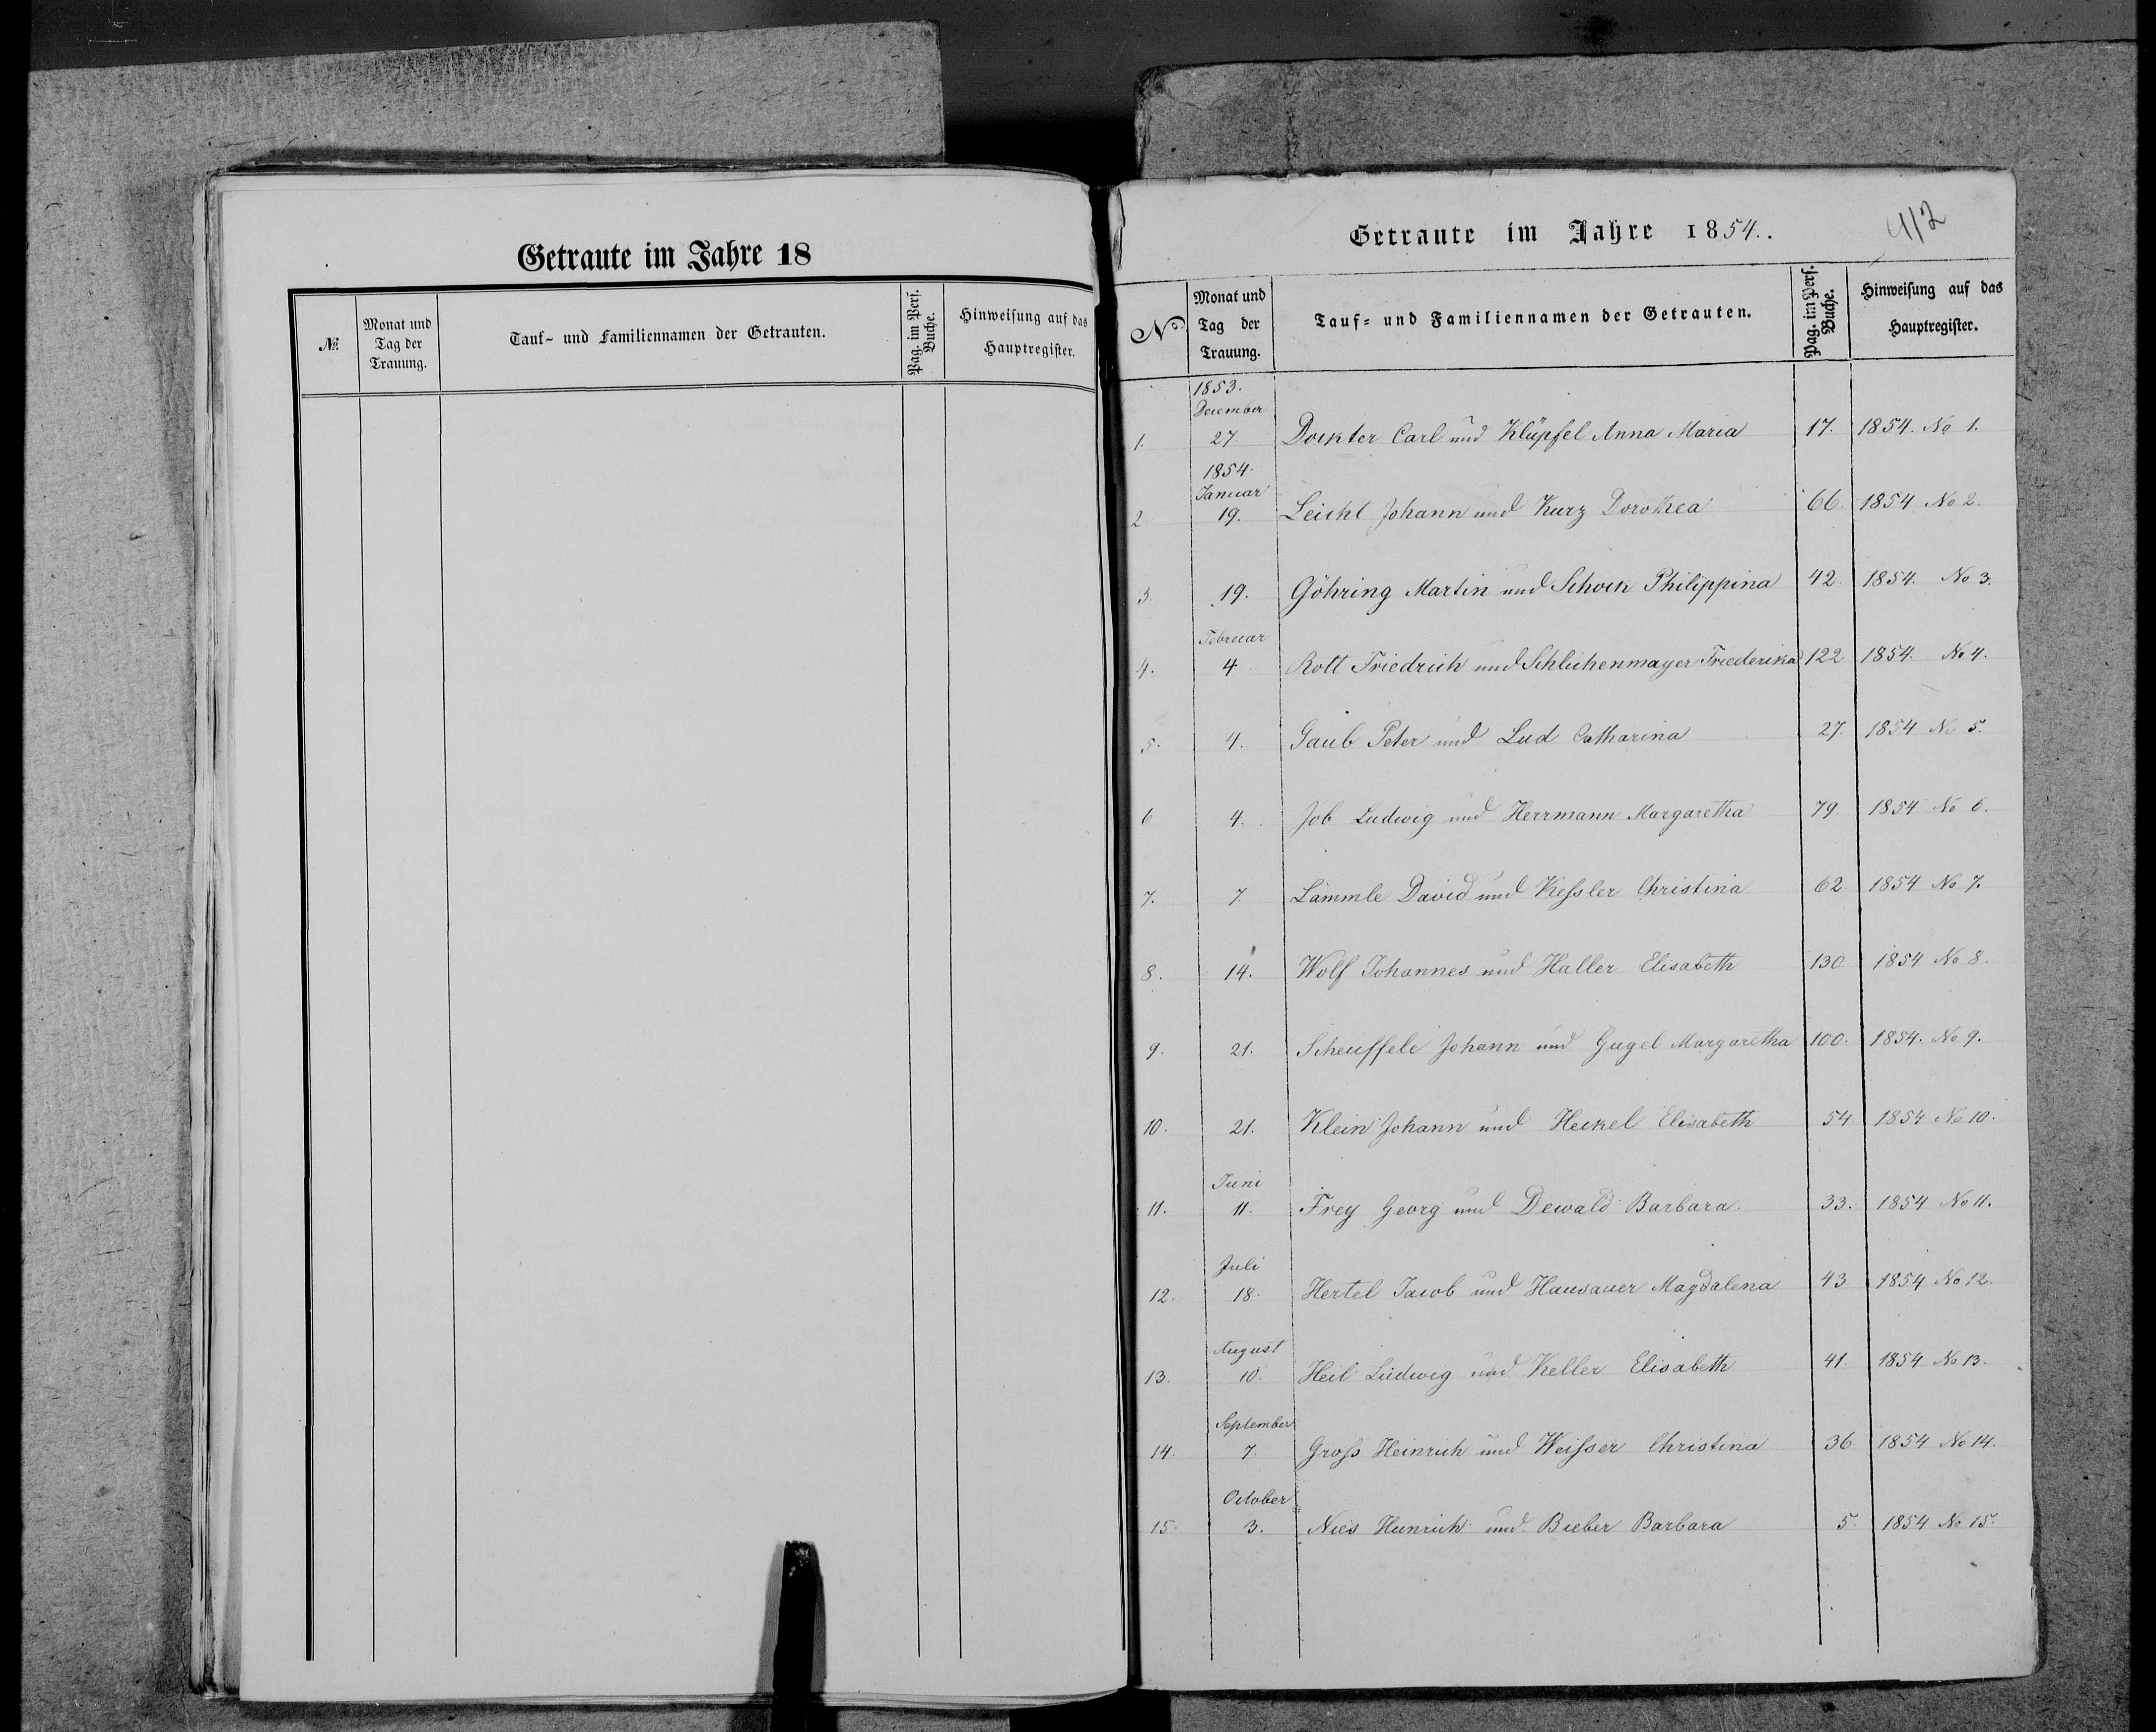 Getraute im Jahre 18
№ Monat und Tag der Trauung. Tauf- und Familiennamen der Getrauten. Pag. im Pers. Buche. Hinweisung auf das Hauptregister.
412
Getraute im Jahre 1854.
No Monat und Tag der Trauung. Tauf- und Familiennamen der Getrauten. Pag. im Pers. Buche. Hinweisung auf das Hauptregister.
1853.
December
1. 27 Dockter Carl und Klüpfel Anna Maria 17. 1854. No 1.
1854.
Januar
2 19. Leicht Johann und Kurz Dorothea 66. 1854 No 2.
3. 19. Göhring Martin und Schock Philippina 42. 1854. No 3.
Februar
4. 4 Rott Friedrich und Schlichenmayer Friederika 122 1854. No 4.
5. 4. Gaub Peter und Lud Catharina 27. 1854 No 5.
6 4. Job Ludwig und Herrmann Margaretha 79. 1854 No 6.
7. 7. Lämmle David und Keßler Christina 62. 1854 No 7.
8. 14. Wolf Johannes und Haller Elisabeth 130 1854 No 8.
9. 21. Scheuffele Johann und Gugel Margaretha 100. 1854. No 9.
10. 21. Klein Johann und Heckel Elisabeth 54 1854 No 10.
Juni
11. 11. Frey Georg und Dewald Barbara. 33. 1854 No 11.
Juli
12. 18. Hertel Jacob und Hausauer Magdalena 43 1854 No 12.
August
13. 10. Heil Ludwig und Keller Elisabeth 41. 1854 No 13.
September
14. 7. Groß Heinrich und Weißer Christina 36 1854 No 14.
October
15. 3. Nies Heinrich und Bieber Barbara 5. 1854 No 15.